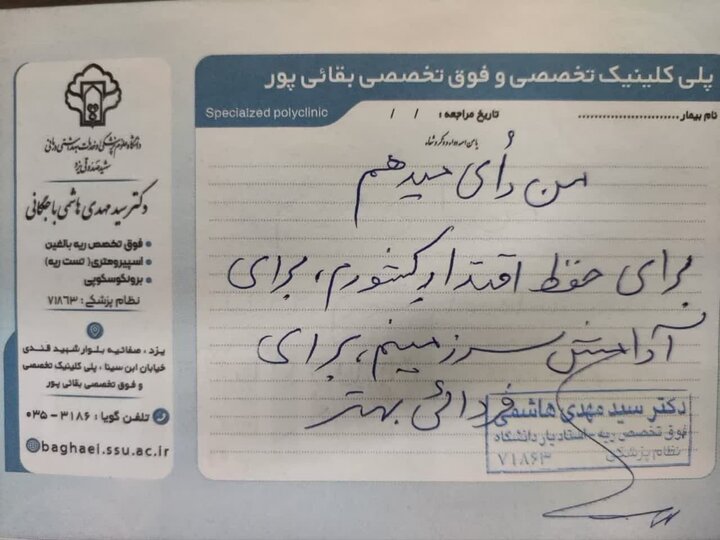 پلی کلینیک تخصصی و فوق تخصصی بقائی پور
Specialzed polyclinic
نام بیمار
تاریخ مراجعه : / /
من رأی میدهم
برای حفظ اقتدار کشورم، برای
آرامش سرزمینم، برای
فردائی بهتر
دکتر سید مهدی هاشمی
فوق تخصص ریه - استادیار دانشگاه
نظام پزشکی
۷۱۸۶۳
دانشگاه علوم پزشکی و خدمات بهداشتی درمانی
شهید صدوقی یزد
دکتر سید مهدی هاشمی باجگانی
فوق تخصص ریه بالغین
اسپیرومتری( تست ریه)
برونکوسکوپی
نظام پزشکی : ۷۱۸۶۳
یزد ، صفائیه بلوار شهید قندی
خیابان ابن سینا ، پلی کلینیک تخصصی
و فوق تخصصی بقائی پور
تلفن گویا : ۳۱۸۶ - ۰۳۵
baghaei.ssu.ac.ir